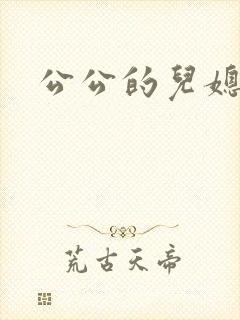 公公的兒媳
荒古天帝